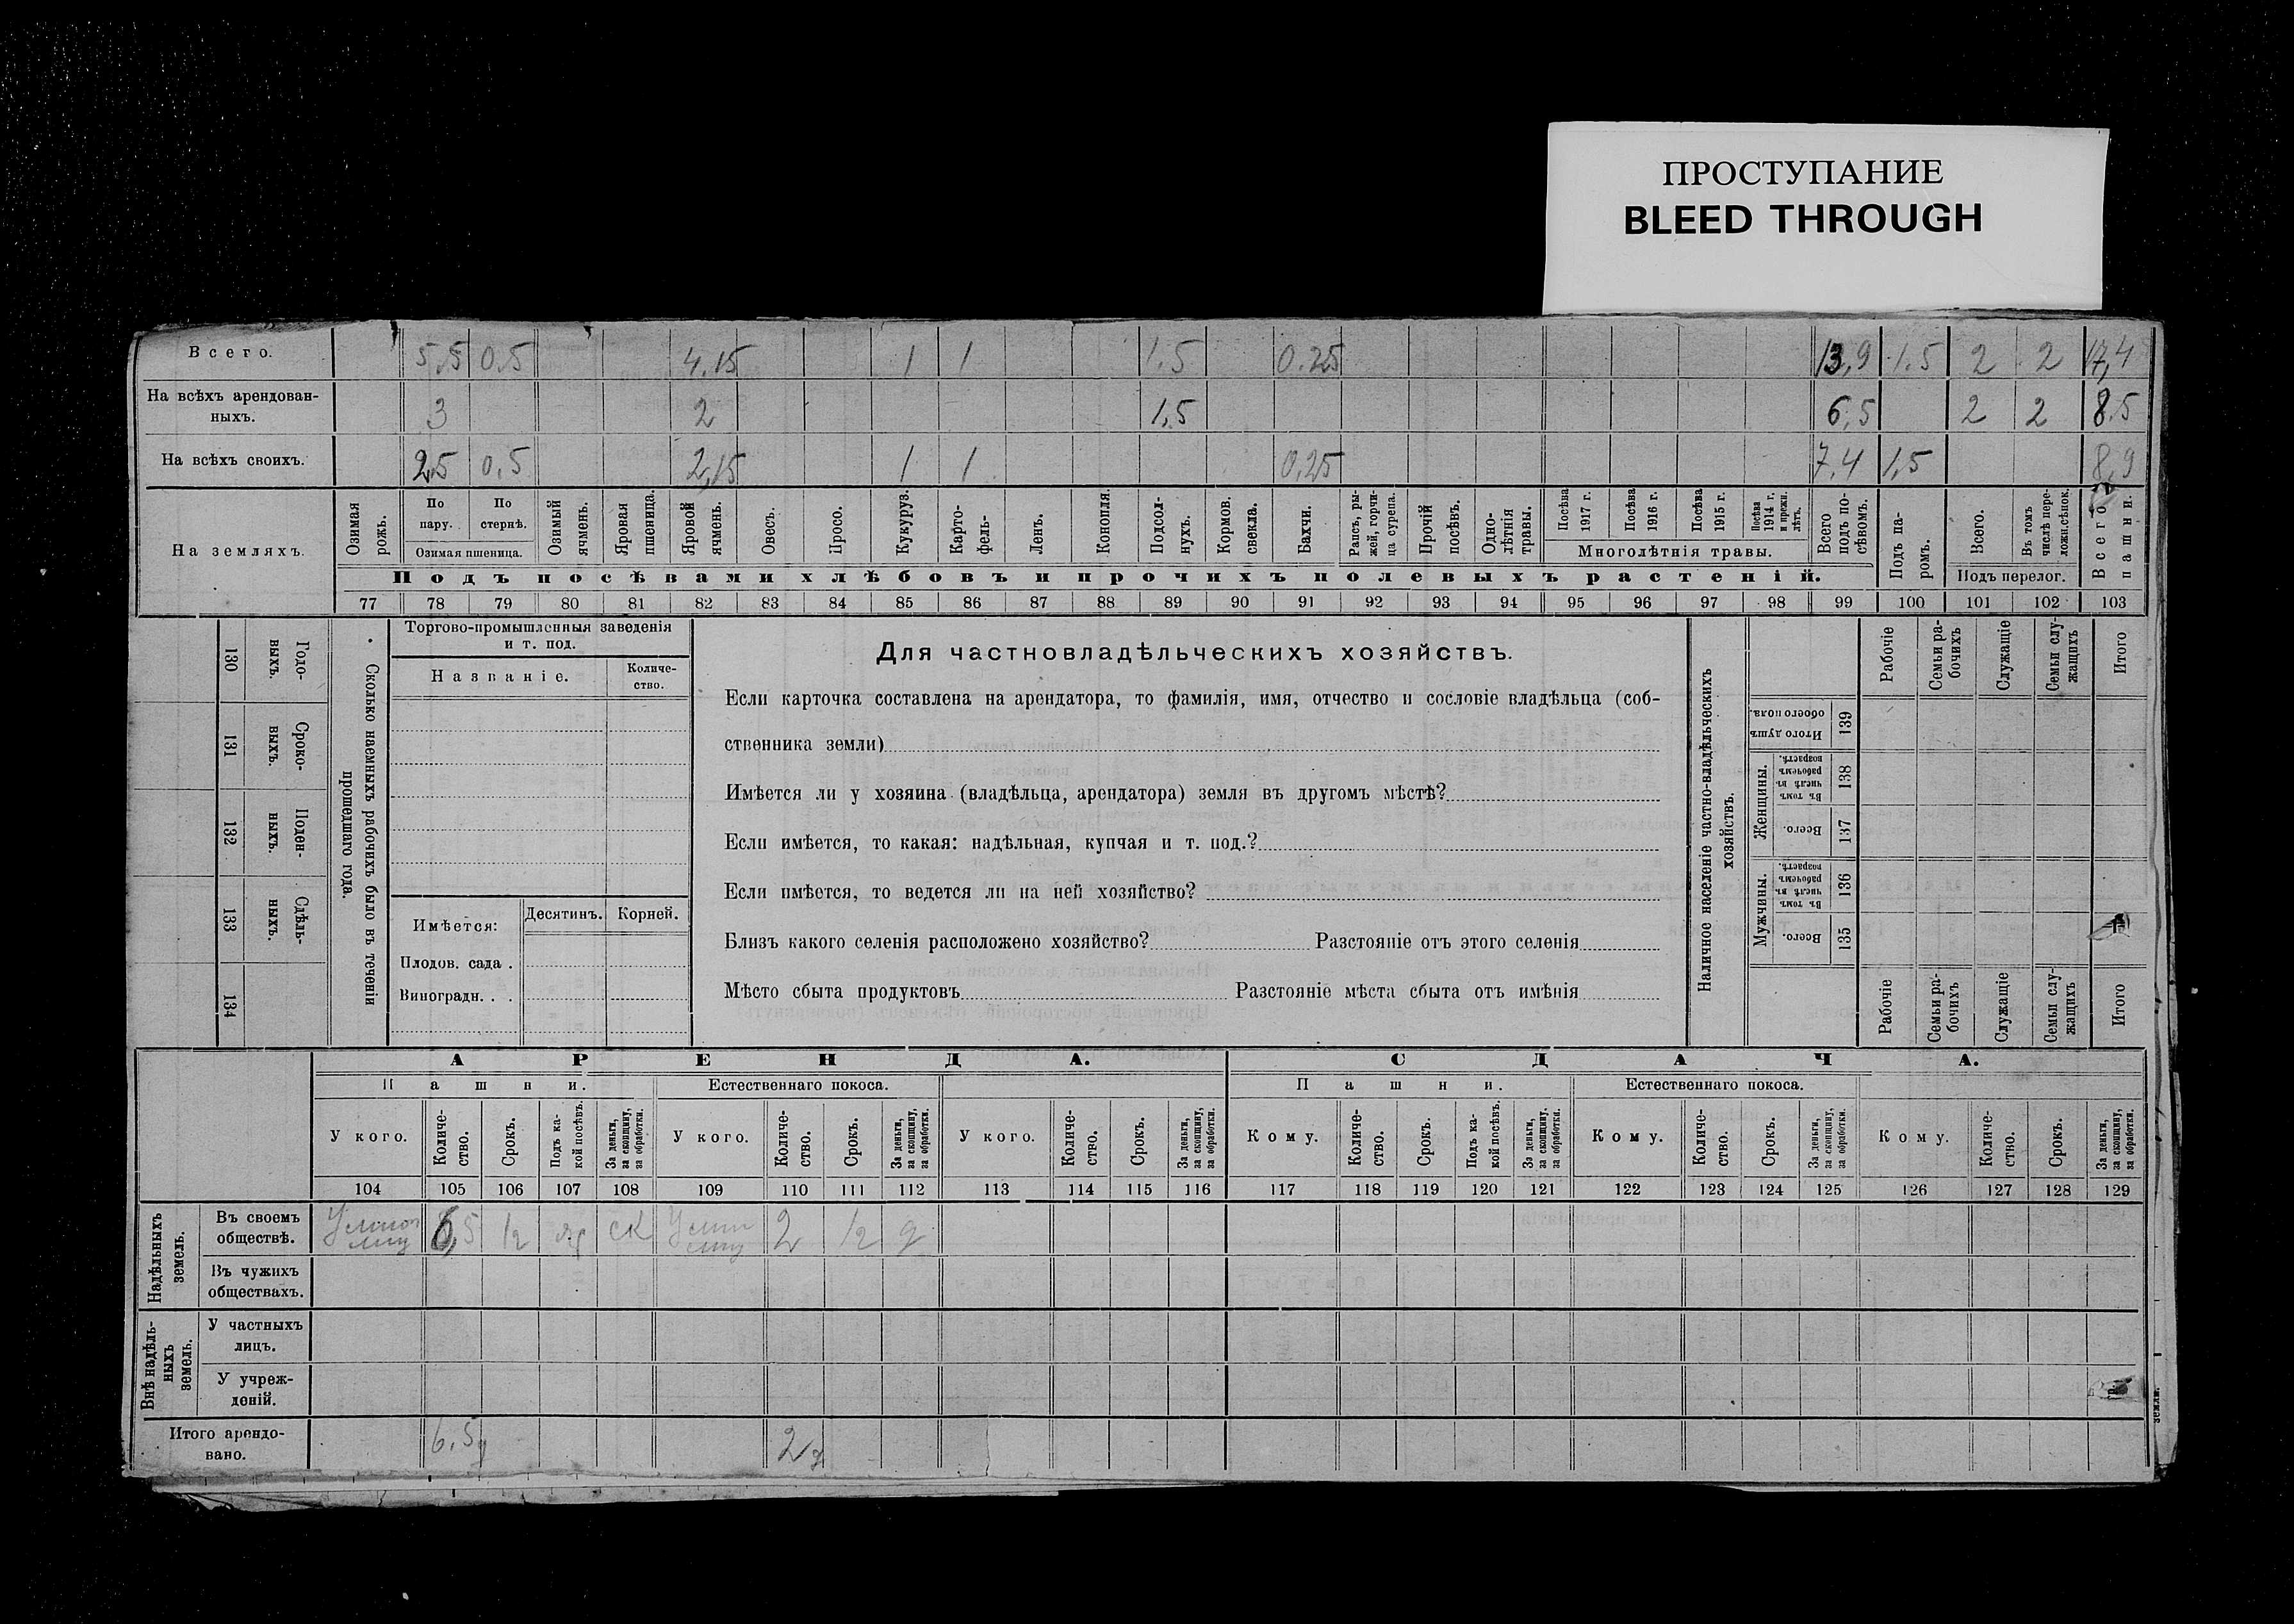 ПРОСТУПАНИЕ
BLEED THROUGH
Всего. 5,5 0,5 4,15 1 1 1,5 0.25 13,9 1.5 2 2 17,4
На всѣхъ арендован-
ныхъ. 3 2 1,5 6,5 2 2 8.5
На всѣхъ своихъ. 2,5 0,5 2,15 1 1 0,25 7,4 1,5 8,9
На земляхъ.
Озимая рожь.
По пару.
По стернѣ.
Озимая пшеница.
Озимый ячмень.
Яровая пшеница.
Яровой ячмень.
Овесъ.
Просо.
Кукуруз.
Карто-
фель-
Ленъ.
Конопля.
Подсол-
нухъ.
Кормов. свекла.
Бахчи.
Рапсъ, ры-
жей, горчи-
ца сурепа.
Прочій посѣвъ.
Одно-
лѣтнія травы.
Посѣва 1917 г.
Посѣва 1916 г.
Посѣва 1915 г.
Посѣва 1914 г. и прежн. лѣтъ.
Многолѣтнія травы.
Всего подъ по-
сѣвомъ.
Подъ па-
ромъ.
Всего.
Въ томъ числѣ пере-
ложн.сѣнок.
Подъ перелог.
Всего пашни.
Подъ посѣвами хлѣбовъ и прочихъ полевыхъ растеній.
77 78 79 80 81 82 83 84 85 86 87 88 89 90 91 92 93 94 95 96 97 98 99 100 101 102 103
130 Годо-
выхъ.
131 Сроко-
выхъ.
132 Поден-
ныхъ.
133 Сдѣль-
ныхъ.
134
Сколько наемныхъ рабочихъ было въ теченіи
прошедшаго года.
Торгово-промышленныя заведенія
и т. под.
Названіе.
Количе-
ство.
Имѣется:
Десятинъ. Корней.
Плодов. сада .
Виноградн. . .
Для частновладѣльческихъ хозяйствъ.
Если карточка составлена на арендатора, то фамилія, имя, отчество и сословіе владѣльца (соб-
ственника земли)
Имѣется ли у хозяина (владѣльца, арендатора) земля въ другомъ мѣстѣ?
Если имѣется, то какая: надѣльная, купчая и т. под.?
Если имѣется, то ведется ли на ней хозяйство?
Близъ какого селенія расположено хозяйство? Разстояніе отъ этого селенія
Мѣсто сбыта продуктовъ Разстояніе мѣста сбыта отъ имѣнія
Наличное населеніе частно-владѣльческихъ
хозяйствъ.
Рабочіе
Семьи ра-
бочихъ
Служащіе
Семьи слу-
жащихъ
Итого
Итого душъ обоего пола. 139
Женщины.
Въ томъ числѣ въ рабочемъ возрастѣ. 138
Всего. 137
Мужчины.
Въ томъ числѣ въ рабочемъ возрастѣ. 136
Всего. 135
Рабочіе
Семьи ра-
бочихъ
Служащіе
Семьи слу-
жащихъ
Итого
АРЕНДА. СДАЧА.
Пашни. Естественнаго покоса. Пашни. Естественнаго покоса.
У кого.
Количе-
ство.
Срокъ.
Подъ ка-
кой посѣвъ.
За деньги, за скопщину, за обработки.
У кого.
Количе-
ство.
Срокъ.
За деньги, за скопщину, за обработки.
У кого.
Количе-
ство.
Срокъ.
За деньги, за скопщину, за обработки.
Кому.
Количе-
ство.
Срокъ.
Подъ ка-
кой посѣвъ.
За деньги, за скопщину, за обработки.
Кому.
Количе-
ство.
Срокъ.
За деньги, за скопщину, за обработки.
Кому.
Количе-
ство.
Срокъ.
За деньги, за скопщину, за обработки.
104 105 106 107 108 109 110 111 112 113 114 115 116 117 118 119 120 121 122 123 124 125 126 127 128 129
Надѣльныхъ
земель.
Въ своемъ
обществѣ. 6,5 1/2 ск 2 1/2 д
Въ чужихъ
обществахъ.
Внѣ надѣль-
ныхъ
земель.
У частныхъ
лицъ.
У учреж-
деній.
Итого арендо-
вано. 6.5д 2д
земли.